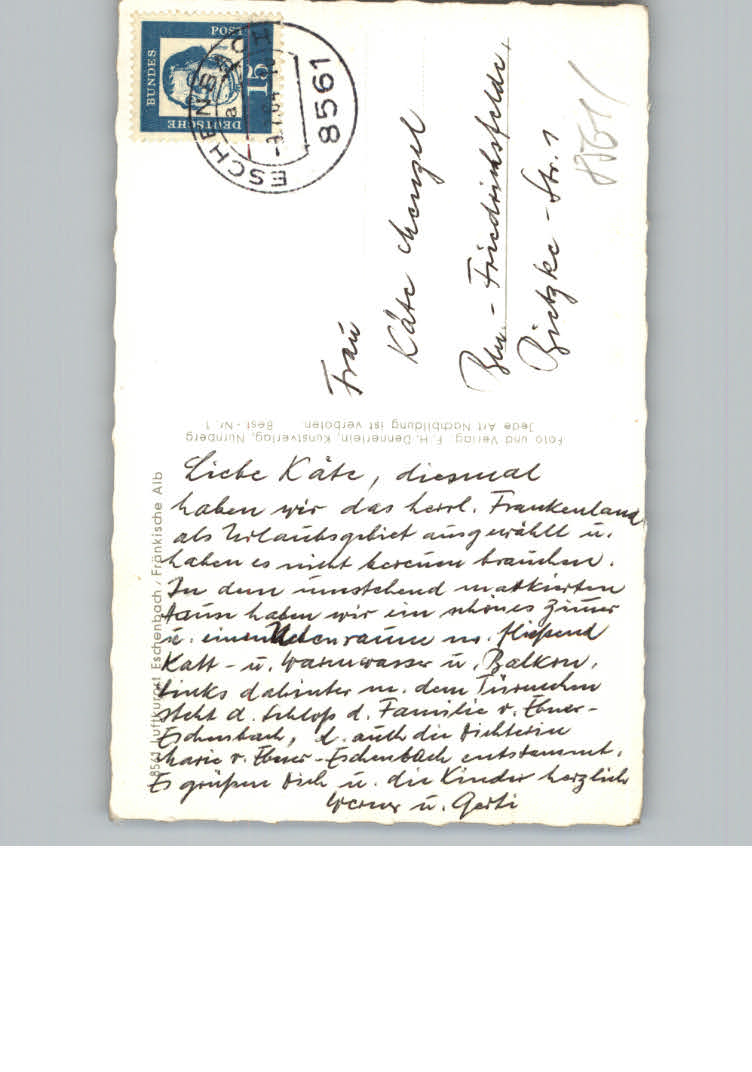 DEUTSCHE
BUNDES
POST
15
ESCHENBACH
8561
a
8561
Frau
Käte Menzel
Bln. - Friedrichsfelde,
Bietzke - Str. 1
Foto und Verlag: F. H. Dennerlein, Kunstverlag, Nürnberg
Jede Art Nachbildung ist verboten Best - Nr. 1
8561 Luftkurort Eschenbach / Fränkische Alb
Liebe Käte, diesmal
haben wir das herrl. Frankenland
als Urlaubsgebiet ausgewählt u.
haben es nicht bereuen brauchen.
In dem umstehend markierten
Hause haben wir ein schönes Zimmer
u. einen Nebenraum m. fließend
Kalt - u. Warmwasser u. Balkon.
Links dahinter m. dem Türmchen
steht d. Schloß d. Familie v. Ebner-
Eschenbach, d. auch die Dichterin
Marie v. Ebner-Eschenbach entstammt.
Es grüßen Dich u. die Kinder herzlich
Werner u. Gerti